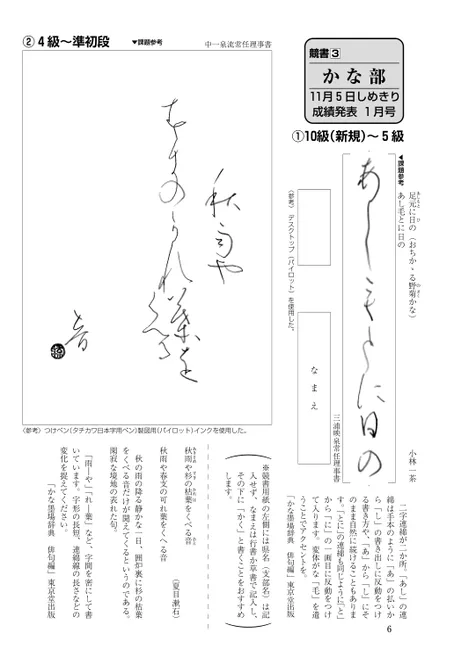 競書③
かな部
11月5日しめきり
成績発表 1月号
①10級(新規)〜5級
◀課題参考
足元に日の(おちかゝる野菊かな)
あし毛とに日の
小林一茶
あしもとに日の
三浦暎泉常任理事書
なまえ
〈参考〉 デスクトップ(パイロット)を使用した。
二字連綿が二か所。「あし」の連
綿は手本のように「あ」の払いか
ら「し」の書き出しに反動をつけ
る書き方や、「あ」から「し」にそ
のまま自然に続けることもありま
す。「とに」の連綿も同じように「と」
から「に」の一画目に反動をつけ
て入ります。変体がな「毛」を遣
うことでアクセントを。
「かな墨場辞典 俳句編」東京堂出版
※競書用紙の左側には県名(支部名)は記
入せず、なまえは行書か草書で記入し、
その下に「かく」と書くことをおすすめ
します。
②4級〜準初段
▼課題参考
中一泉流常任理事書
秋雨や
すぎの
かれ葉を
くべる
音
〈参考〉つけペン(タチカワ日本字用ペン)製図用(パイロット)インクを使用した。
秋雨や杉の枯葉をくべる音
(夏目漱石)
秋雨や春支の可れ葉をくべる音
秋の雨の降る静かな一日、囲炉裏に杉の枯葉
をくべる音だけが聞えてくるというのである。
閑寂な境地の表れた句。
「雨―や」「れ―葉」など、字間を密にして書
いています。字形の長短、連綿線の長さなどの
変化を捉えてください。
「かな墨場辞典 俳句編」東京堂出版
6